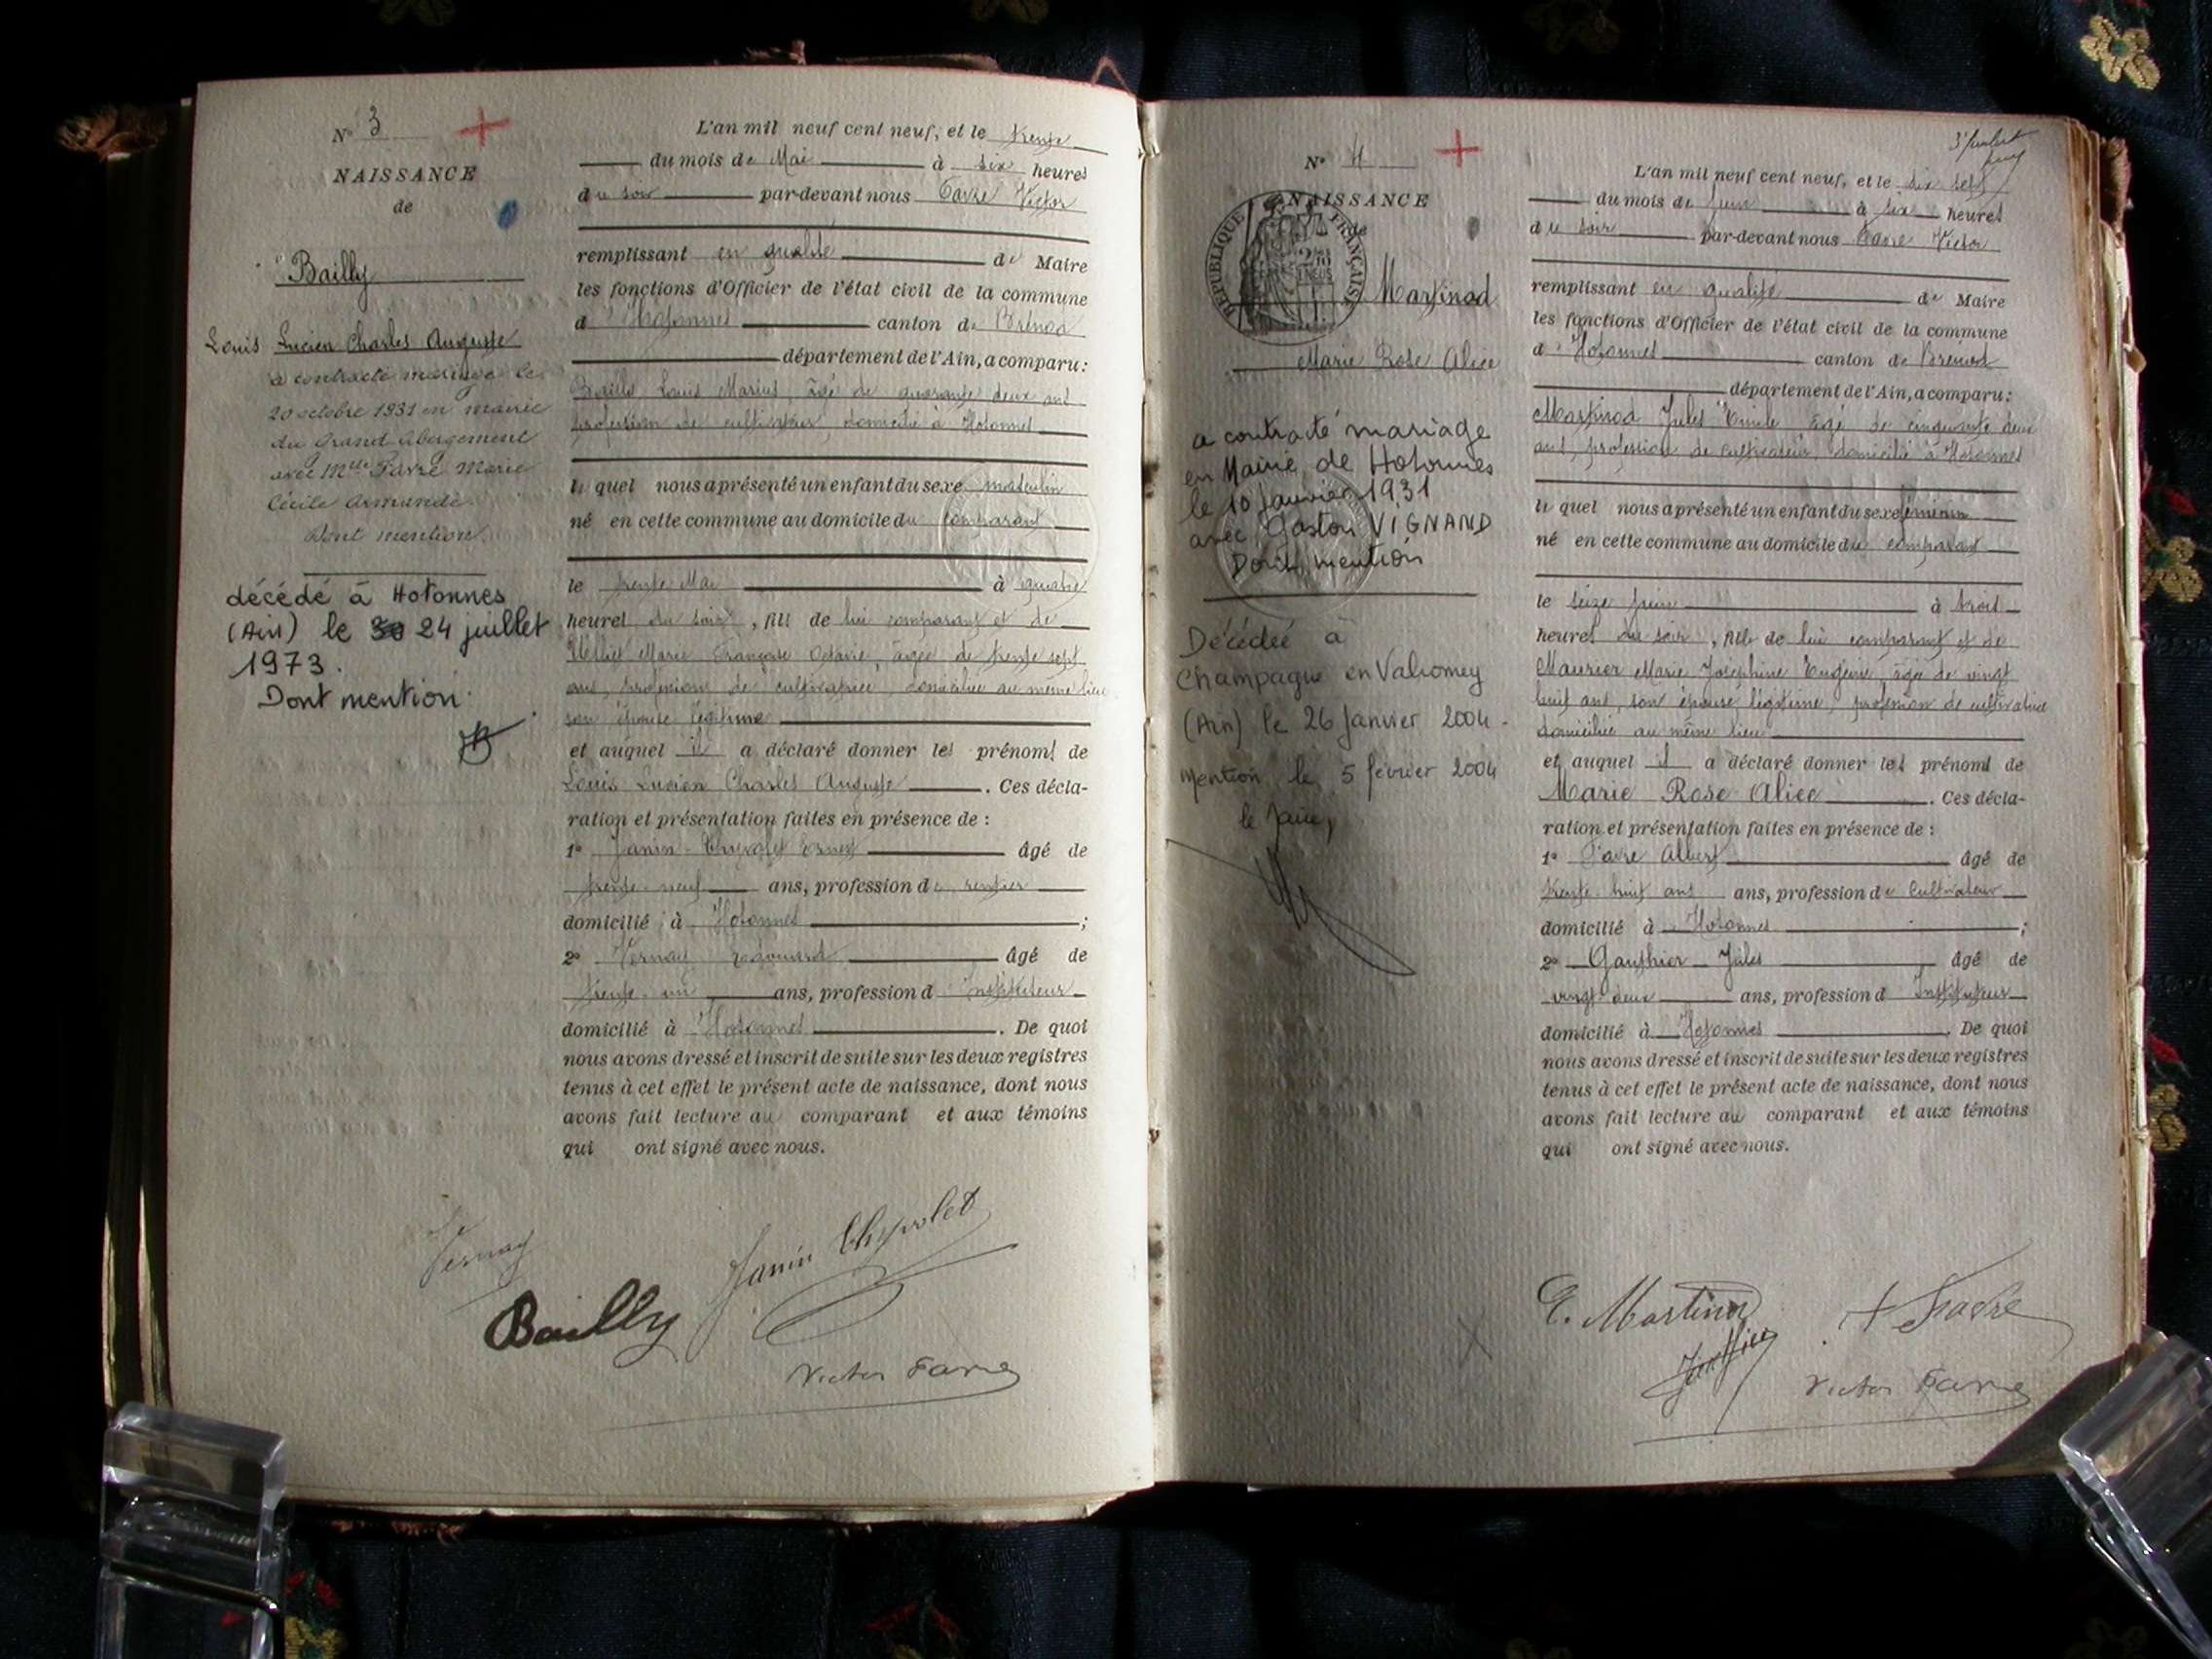 N° 3
NAISSANCE
de
Bailly
Louis Lucien Charles Auguste
a contracté mariage le
20 octobre 1931 en mairie
du Grand Abergement
avec Mlle Favre Marie
Cécile Armande.
Dont mention.
décédé à Hotonnes
(Ain) le 24 juillet
1973.
Dont mention:
L'an mil neuf cent neuf, et le trente
du mois de Mai à six heures
du soir par-devant nous Favre Victor
remplissant en qualité de Maire
les fonctions d'Officier de l'état civil de la commune
d'Hotonnes canton de Brénod
département de l'Ain, a comparu:
Bailly Louis Marius, âgé de quarante deux ans
profession de cultivateur, domicilié à Hotonnes
le quel nous a présenté un enfant du sexe masculin
né en cette commune au domicile du comparant
le trente Mai à quatre
heures du soir, fils de lui comparant et de
Marie Françoise Octavie, âgée de trente sept
ans, profession de cultivatrice, domiciliée au même lieu
son épouse légitime
et auquel il a déclaré donner les prénoms de
Louis Lucien Charles Auguste. Ces décla-
ration et présentation faites en présence de :
1° Janin Chypolet Ernest âgé de
trente neuf ans, profession de rentier
domicilié à Hotonnes ;
2° Vernay Edouard âgé de
trente un ans, profession d'Instituteur
domicilié à Hotonnes. De quoi
nous avons dressé et inscrit de suite sur les deux registres
tenus à cet effet le présent acte de naissance, dont nous
avons fait lecture au comparant et aux témoins
qui ont signé avec nous.
Vernay
Janin Chypolet
Bailly
Victor Favre
N° 4
NAISSANCE
de
RÉPUBLIQUE FRANÇAISE
Martinod
Marie Rose Alice
a contracté mariage
en Mairie de Hotonnes
le 10 janvier 1931
avec Gaston VIGNAND
Dont mention
Décédée à
Champagne en Valromey
(Ain) le 26 Janvier 2004.
Mention le 5 février 2004
le Maire,
L'an mil neuf cent neuf, et le dix sept
du mois de juin à six heures
du soir par-devant nous Favre Victor
remplissant en qualité de Maire
les fonctions d'Officier de l'état civil de la commune
d'Hotonnes canton de Brénod
département de l'Ain, a comparu:
Martinod Jules Emile âgé de cinquante deux
ans, profession de cultivateur, domicilié à Hotonnes
le quel nous a présenté un enfant du sexe féminin
né en cette commune au domicile du comparant
le seize juin à trois
heures du soir, fille de lui comparant et de
Maurier Marie Joséphine Eugénie, âgée de vingt
huit ans, son épouse légitime, profession de cultivatrice
domiciliée au même lieu
et auquel il a déclaré donner les prénoms de
Marie Rose Alice. Ces décla-
ration et présentation faites en présence de :
1° Favre Albert âgé de
trente huit ans ans, profession de cultivateur
domicilié à Hotonnes ;
2° Gauthier Jules âgé de
vingt deux ans, profession d'Instituteur
domicilié à Hotonnes. De quoi
nous avons dressé et inscrit de suite sur les deux registres
tenus à cet effet le présent acte de naissance, dont nous
avons fait lecture au comparant et aux témoins
qui ont signé avec nous.
E. Martinod
Favre
Victor Favre